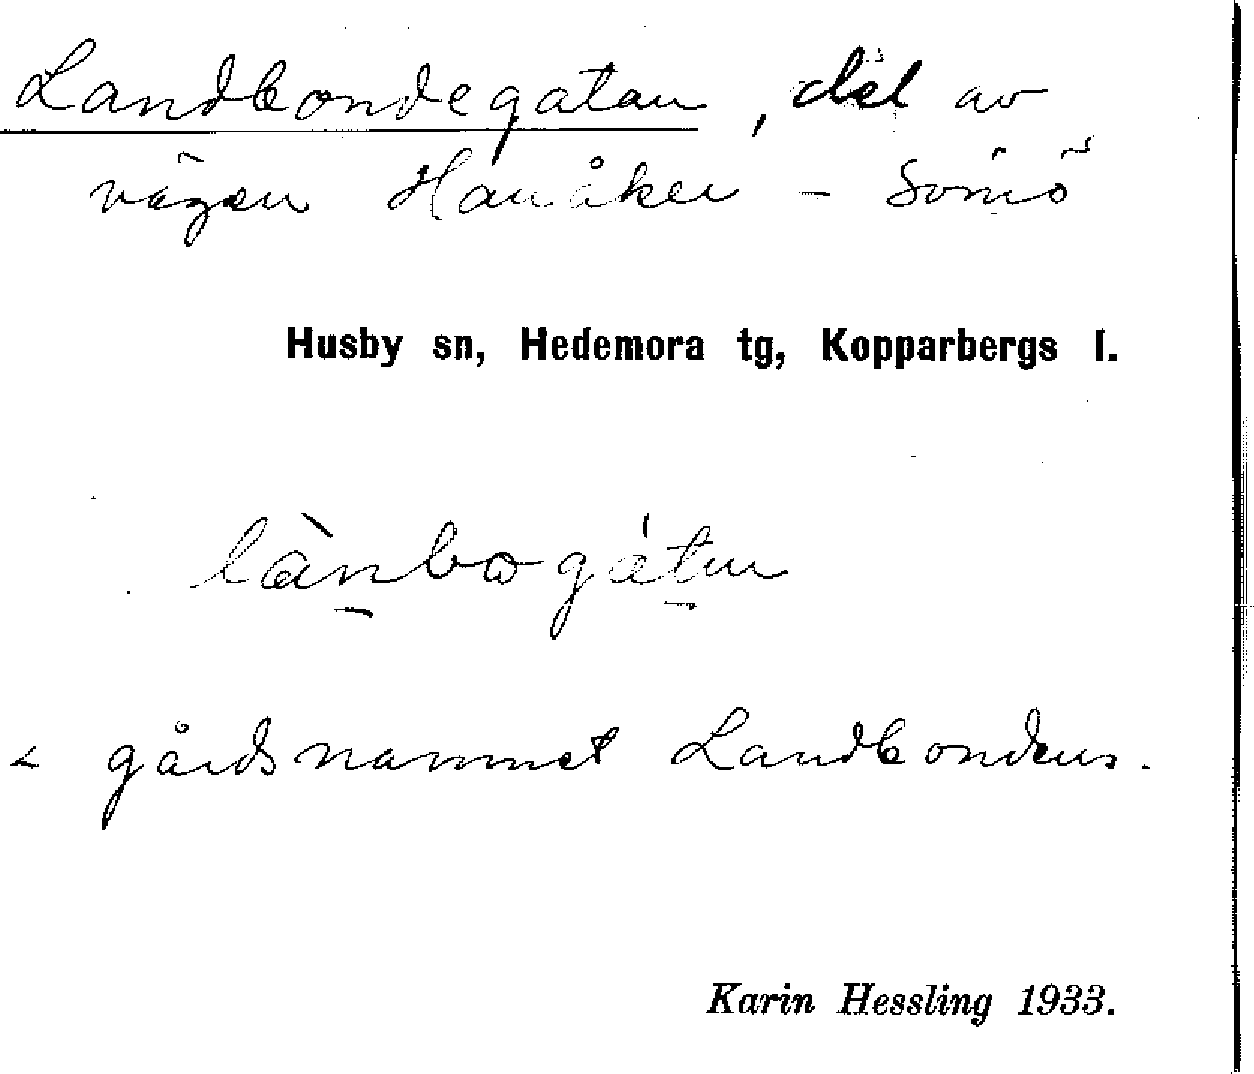 Landbondegatan, del av
vägen Hanåker – Sörnö
Husby sn, Hedemora tg, Kopparbergs l.
lànbogátun
< gårdsnamnet Landbondens.
Karin Hessling 1933.